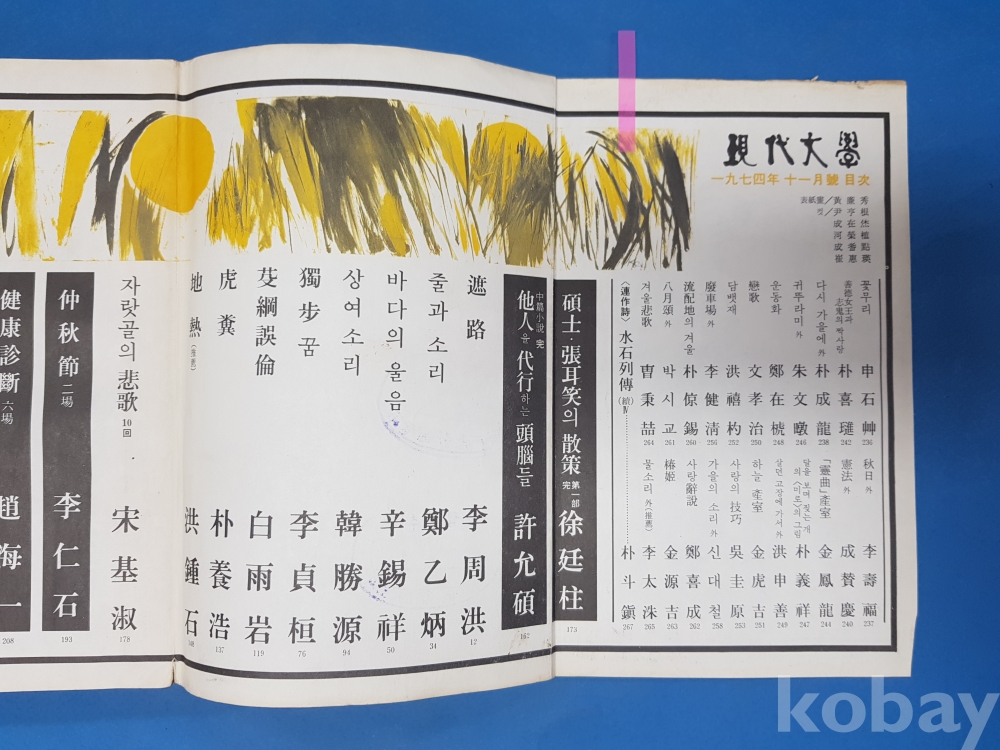 現代文學
一九七四年 十一月號 目次
꽃무리 申石艸 236
善德女王과 志鬼의 짝사랑 朴喜璡 242
다시 가을에 外 朴成龍 238
귀뚜라미 外 朱文暾 246
운동화 鄭在虎 248
戀歌 文孝治 250
담뱃재 洪禧杓 252
廢車場 外 李健淸 256
流配地의 겨울 朴倞錫 260
八月頌 外 박시교 261
겨울悲歌 曺秉喆 264
秋日 外 李壽福 237
憲法 外 成贊慶 240
「靈曲」産室 金鳳龍 244
달을 보며 짖는 개의 〈미로〉의 그림 朴義祥 247
살던 고장에 가서 外 洪申善 249
하늘 産室 金虎吉 251
사랑의 技巧 吳圭原 253
가을의 소리 外 신대철 258
사랑辭說 鄭喜成 262
椿姬 金源吉 263
물소리 外 (推薦) 李太洙 265
〈連作詩〉水石列傳 (續) Ⅳ 朴斗鎭 267
碩士·張耳笑의 散策 第一部 完 徐廷柱 173
中篇小說 完 他人을 代行하는 頭腦들 許允碩 162
遮路 李周洪 12
줄과 소리 鄭乙炳 34
바다의 울음 辛錫祥 50
상여소리 韓勝源 94
獨步꿈 李貞桓 76
芟綱誤倫 白雨岩 119
虎糞 朴養浩 137
地熱 (推薦) 洪鍾石
자랏골의 悲歌 10回 宋基淑 178
仲秋節 二場 李仁石 193
健康診斷 六場 趙海一 208
kobay